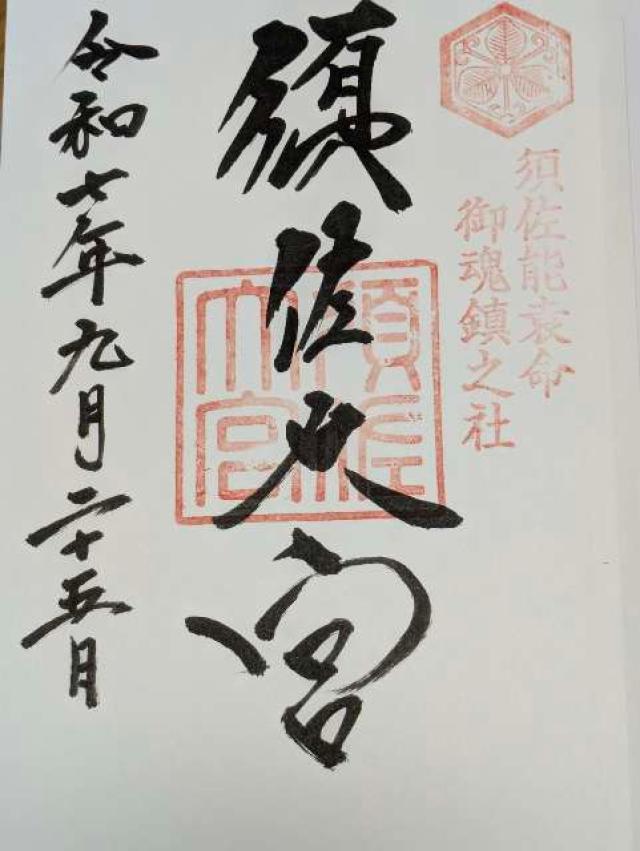 須佐能袁命
御魂鎮之社
須佐大宮
須佐
大宮
令和七年九月二十五日